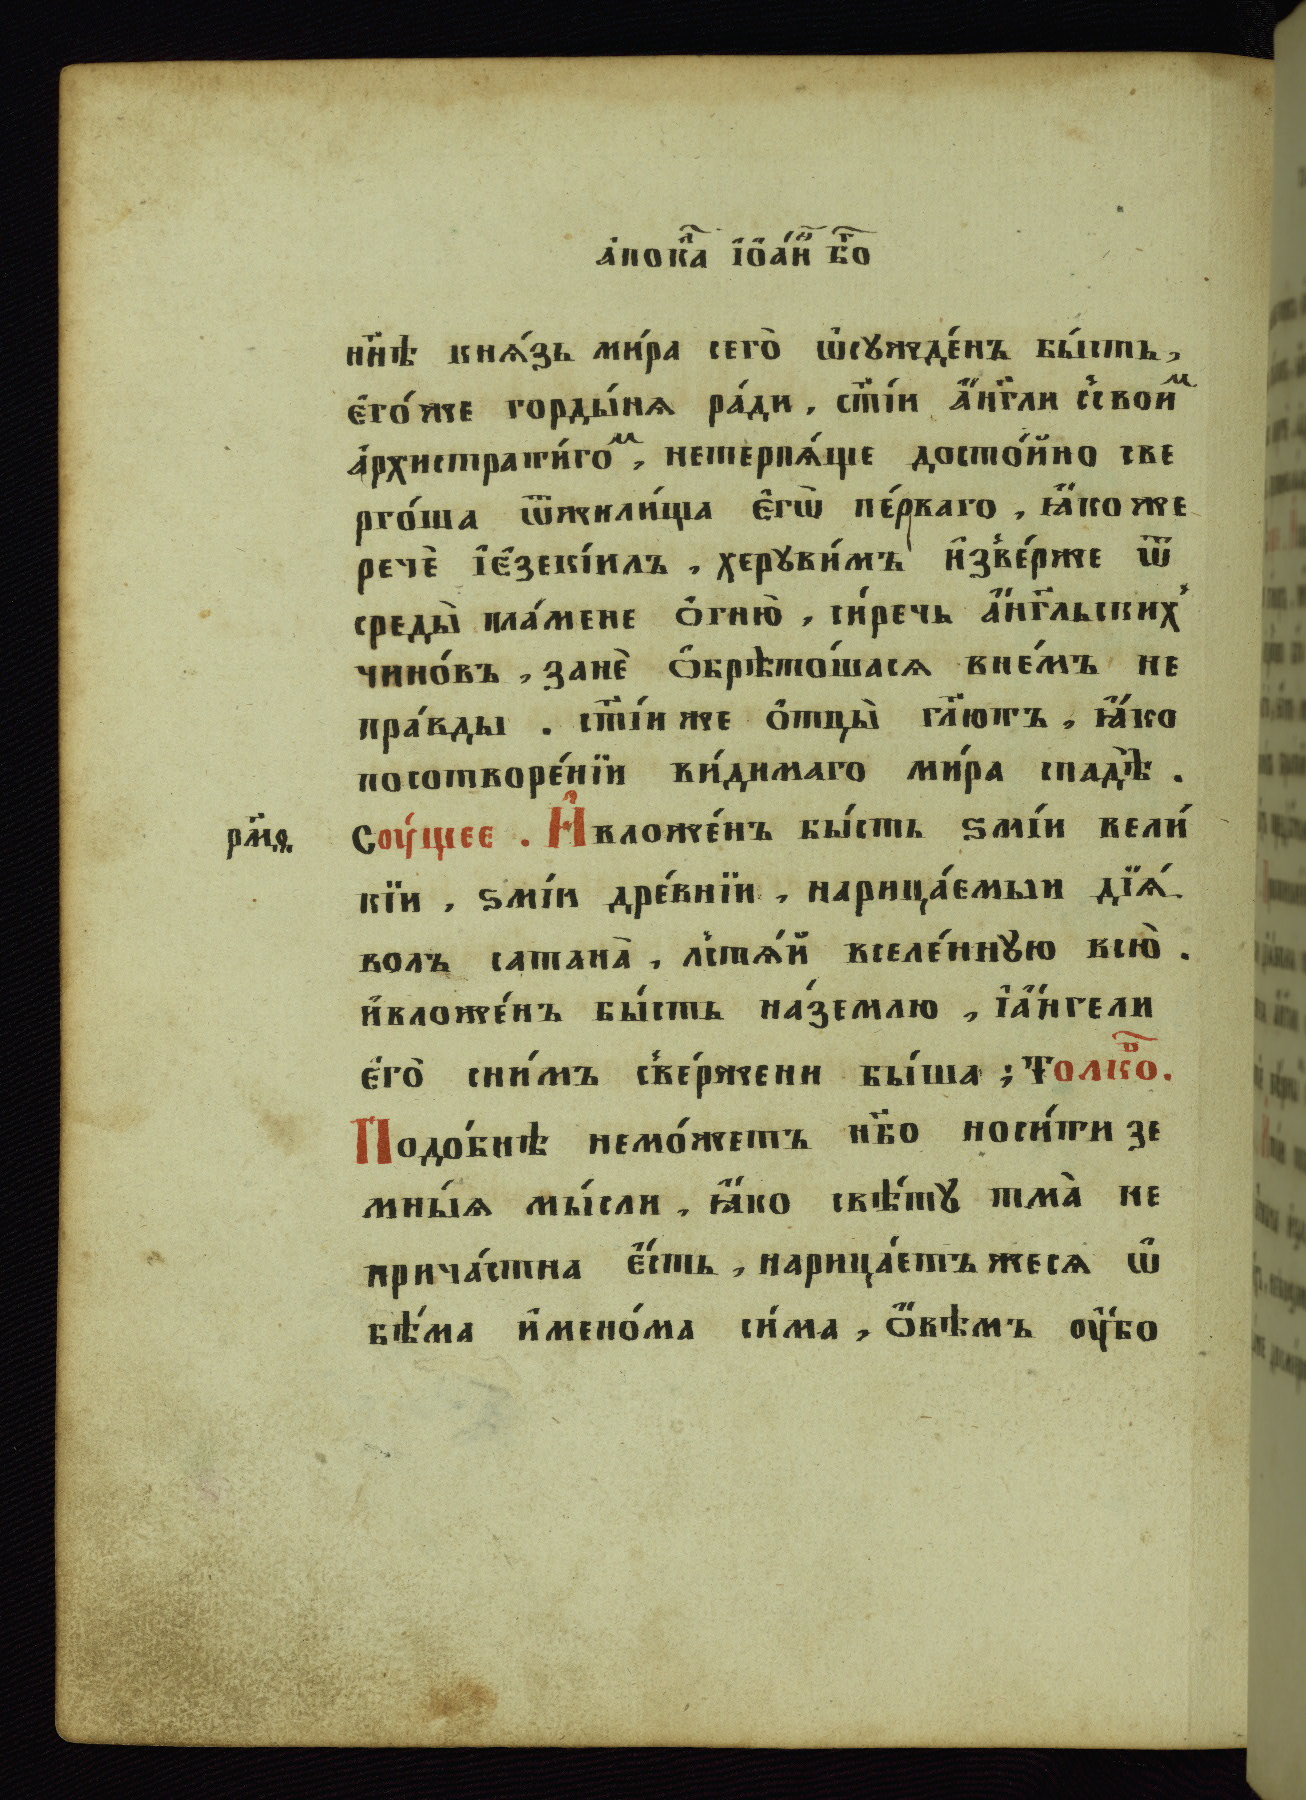 а҆пока́л і҆ѡа́н бг҃о
нн҃ѣ кнѧ́зь ми́ра сего̀ ѡ҆сꙋжде́нъ бы́сть,
є҆го́же горды́нѧ ра́ди, ст҃і́и а҆́нг҃ли с̾свои́м
а҆рхистрати́гом, нетерпѧ́ще досто́йно све
рго́ша ѿжили́ща є҆гѡ̀ пе́рваго, ꙗ҆́коже
речѐ і҆є҆зекі́илъ, херꙋви́мъ и҆зве́рже ѿ
среды̀ пла́мене о҆гню̀, си́речь а҆́нг҃льских̾
чино́въ, занѐ ѡ҆брѣто́шасѧ внем́ъ не
пра́вды . ст҃і́иже ѻ҆тцы̀ гл҃ютъ, ꙗ҆́ко
посотворе́нїи ви́димаго ми́ра спадѐѣ .
рм҃ѳ. Сꙋ́щее . И҆вложе́нъ бы́сть ѕмі́и вели́
кїи , ѕмі́и дре́внїи , нарица́емыи дїѧ́
волъ сатана̀ , льстѧ́й вселе́ннꙋю всю̀ .
и҆вложе́нъ бы́сть на́землю , і҆а҆́нгели
є҆го̀ сни́мъ све́ржени бы́ша ; Толко́в.
Подо́бнѣ немо́жетъ нб҃о носи́ти зе
мны́ѧ мы́сли , ꙗ҆́ко свѣ́тꙋ тма̀ не
прича́стна є҆́сть , нарица́етъжесѧ ѡ҆
бѣ́ма и҆мено́ма си́ма , ѻ҆́вѣмъ ᲂу҆́бо